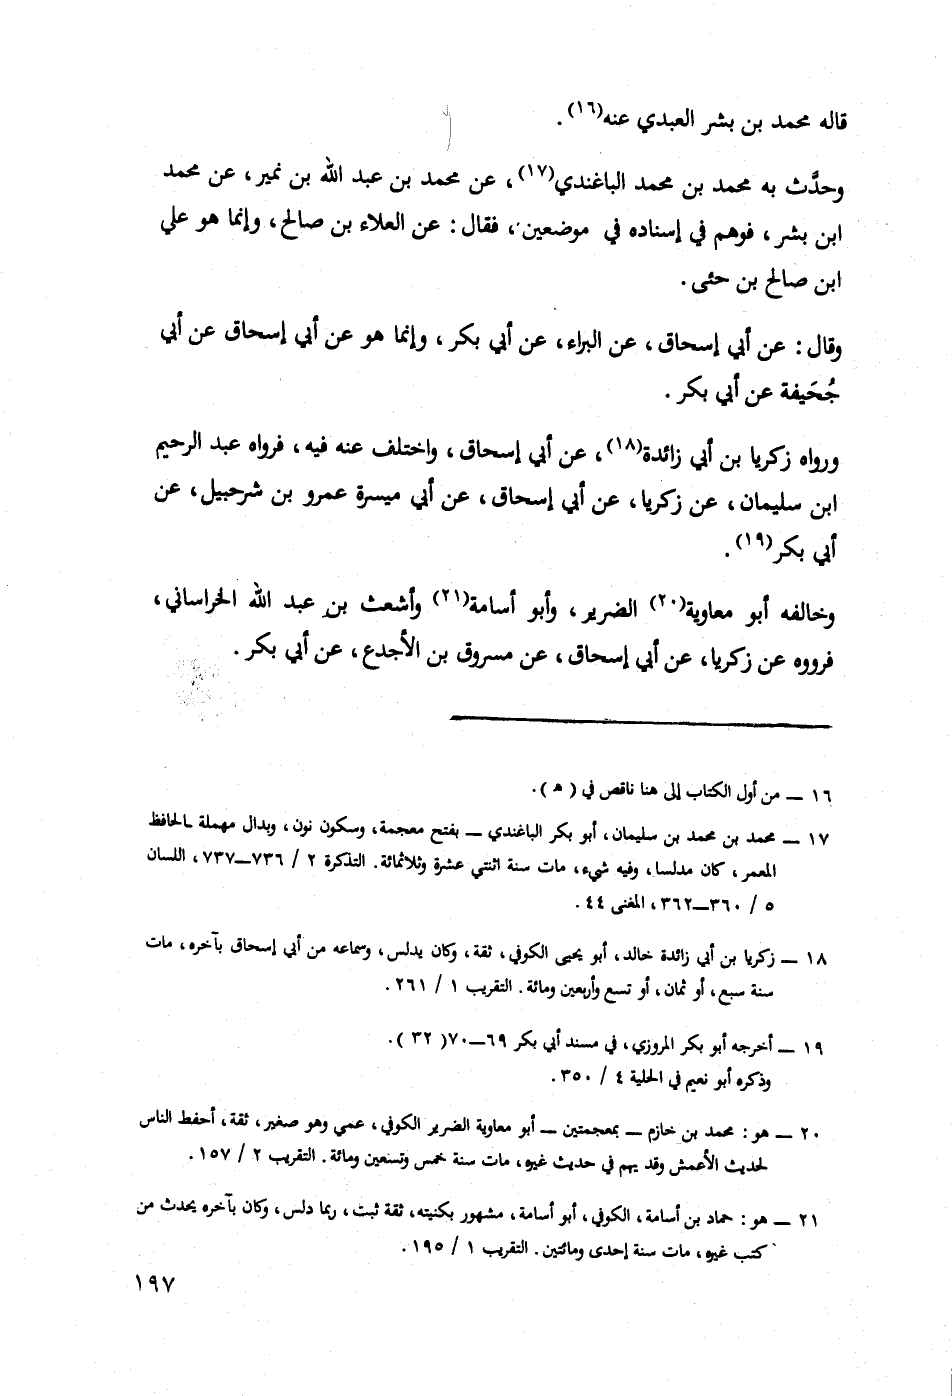 قاله محمد بن بشر العبدي عنه(١٦).
وحدَّث به محمد بن محمد الباغندي(١٧)، عن محمد بن عبد الله بن نمير، عن محمد
ابن بشر، فوهم في إسناده في موضعين، فقال: عن العلاء بن صالح، وإنما هو علي
ابن صالح بن حئى.
وقال: عن أبي إسحاق، عن البراء، عن أبي بكر، وإنما هو عن أبي إسحاق عن أبي
جُحَيفة عن أبي بكر.
ورواه زكريا بن أبي زائدة(١٨)، عن أبي إسحاق، واختلف عنه فيه، فرواه عبد الرحيم
ابن سليمان، عن زكريا، عن أبي إسحاق، عن أبي ميسرة عمرو بن شرحبيل، عن
أبي بكر(١٩).
وخالفه أبو معاوية(٢٠) الضرير، وأبو أسامة(٢١) وأشعث بن عبد الله الخراساني،
فرووه عن زكريا، عن أبي إسحاق، عن مسروق بن الأجدع، عن أبي بكر.
١٦ ــ من أول الكتاب إلى هنا ناقص في (هـ).
١٧ ــ محمد بن محمد بن سليمان، أبو بكر الباغندي ــ بفتح معجمة، وسكون نون، وبدال مهملة ــ الحافظ
المعمر، كان مدلسا، وفيه شيء، مات سنة اثنتي عشرة وثلاثمائة. التذكرة ٢ / ٧٣٦ــ٧٣٧، اللسان
٥ / ٣٦٠ــ٣٦٢، المغنى ٤٤.
١٨ ــ زكريا بن أبي زائدة خالد، أبو يحيى الكوفي، ثقة، وكان يدلس، وسماعه من أبي إسحاق بآخره، مات
سنة سبع، أو ثمان، أو تسع وأربعين ومائة. التقريب ١ / ٢٦١.
١٩ ــ أخرجه أبو بكر المروزي، في مسند أبي بكر ٦٩ــ٧٠ (٣٢).
وذكره أبو نعيم في الحلية ٤ / ٣٥٠.
٢٠ ــ هو: محمد بن خازم ــ بمعجمتين ــ أبو معاوية الضرير الكوفي، عمي وهو صغير، ثقة، أحفظ الناس
لحديث الأعمش وقد يهم في حديث غيره، مات سنة خمس وتسعين ومائة. التقريب ٢ / ١٥٧.
٢١ ــ هو: حماد بن أسامة، الكوفي، أبو أسامة، مشهور بكنيته، ثقة ثبت، ربما دلس، وكان بآخره يحدث من
كتب غيره، مات سنة إحدى ومائتين. التقريب ١ / ١٩٥.
١٩٧